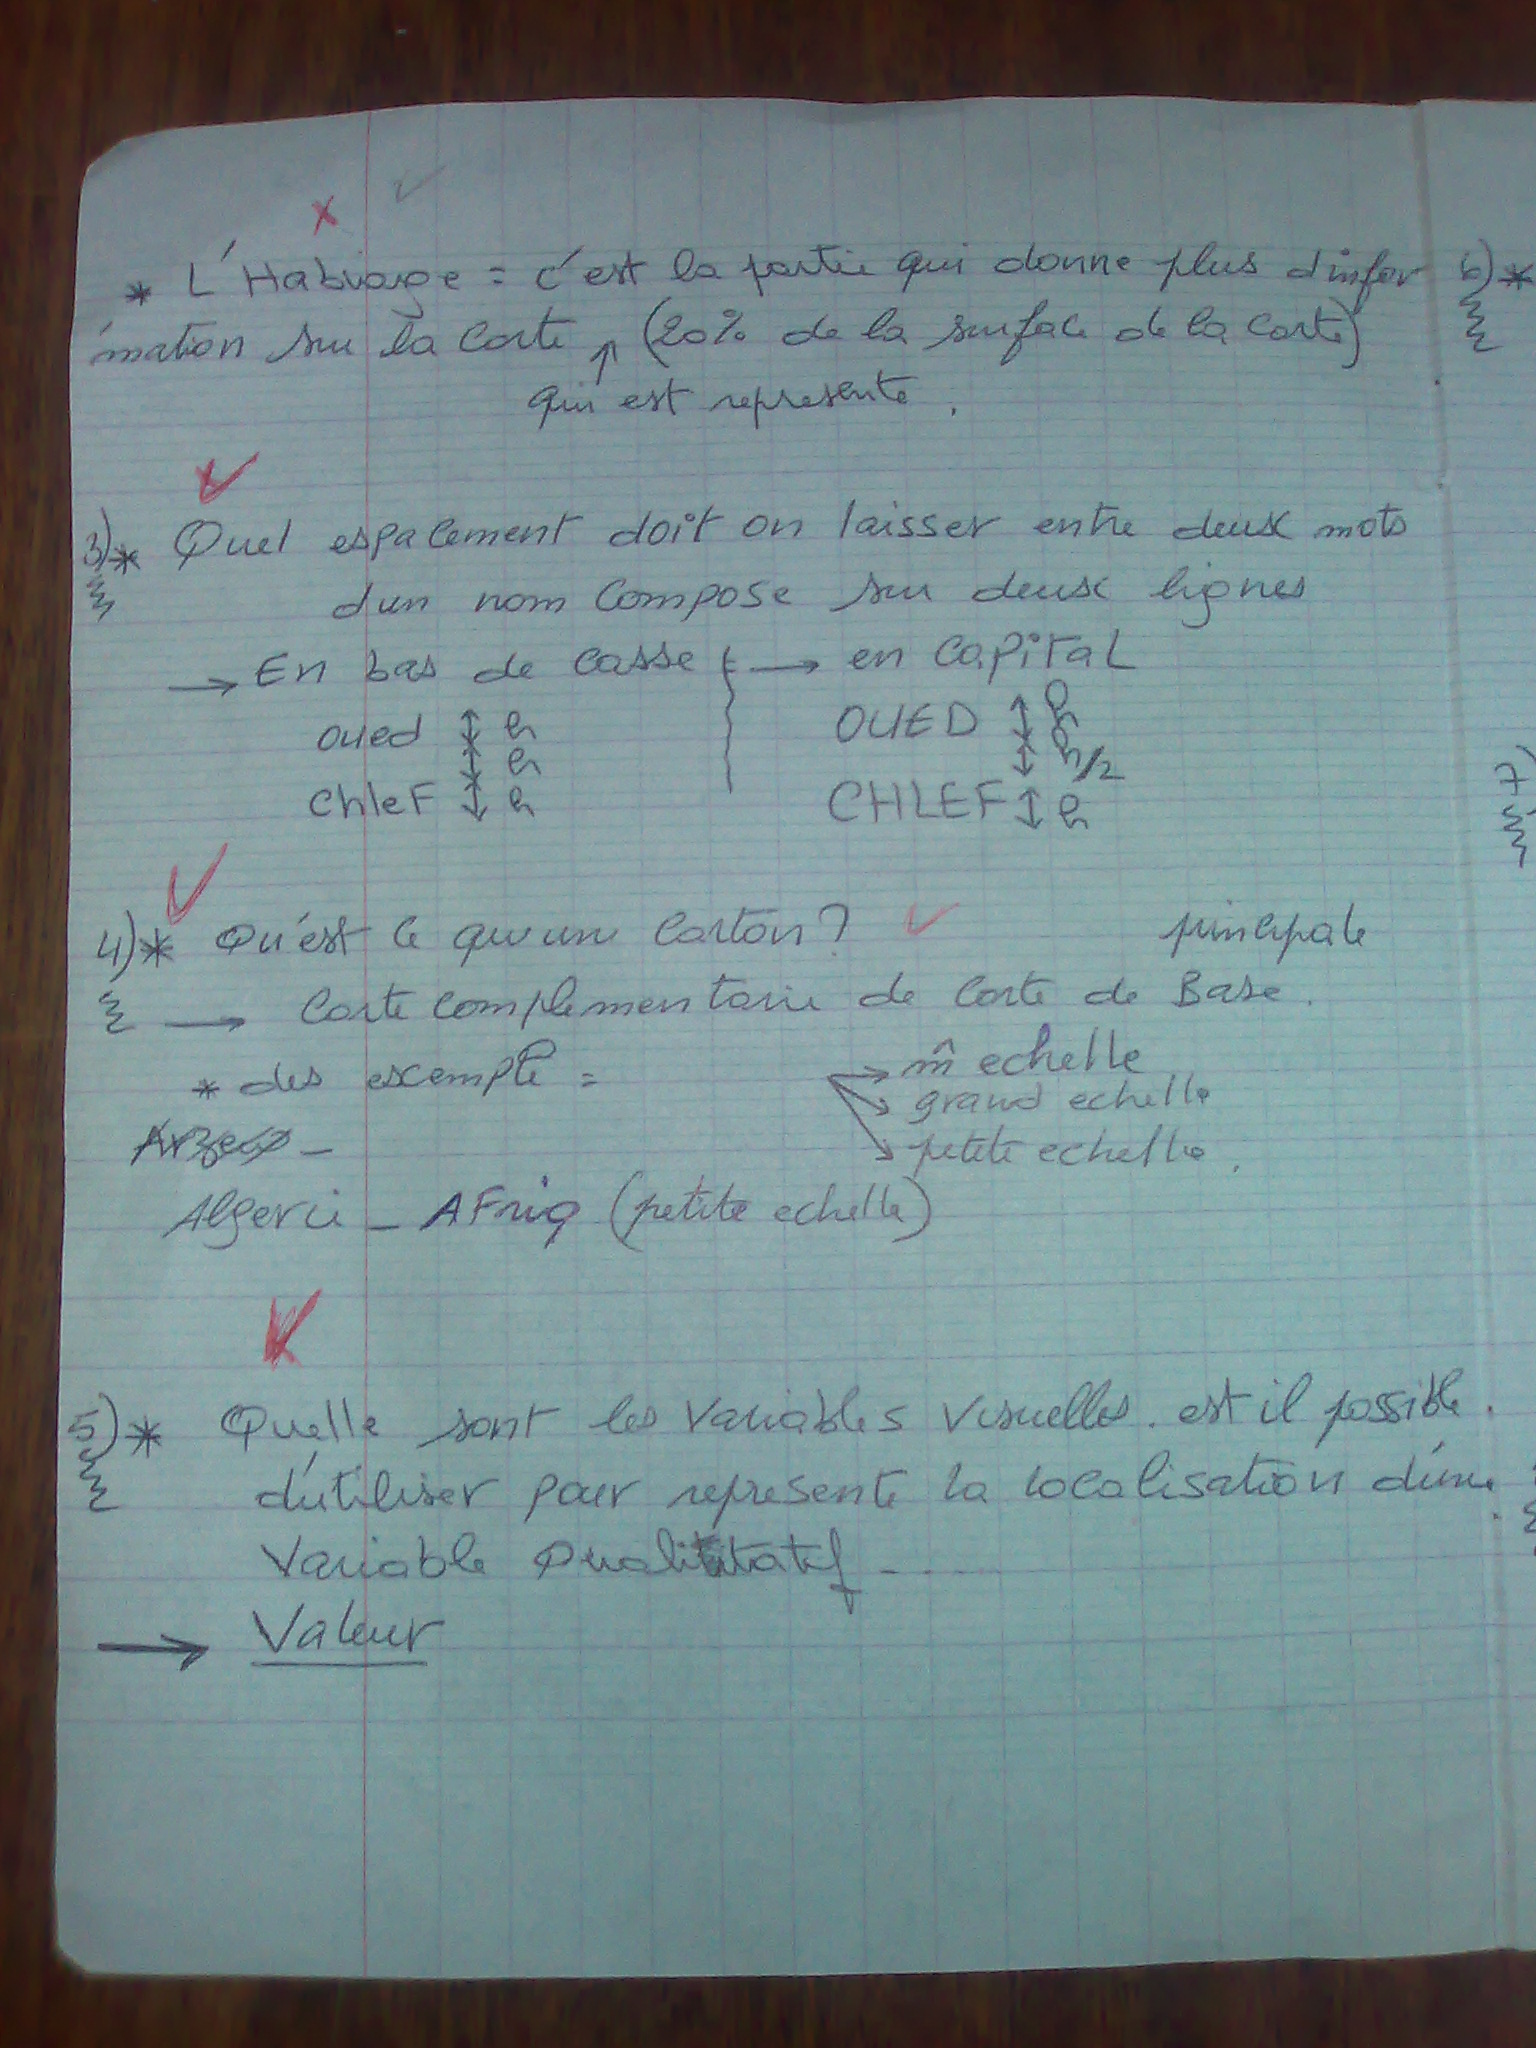 * L'Habiage = c'est la partie qui donne plus d'infor
mation sur la carte (20% de la surface de la carte)
qui est represente.
3)* Quel espacement doit on laisser entre deux mots
d'un nom compose sur deux lignes
→ En bas de casse → en capital
oued h OUED h
h h/2
chlef h CHLEF h
4)* Qu'est ce qu'une carton? principale
→ carte complementaire de carte de Base.
* des exemple = → m̂ echelle
→ grand echelle
Arzew - → petite echelle.
Algerie - AFriq (petite echelle)
5)* Quelle sont les variables visuelles. est il possible.
d'utiliser pour represente la localisation d'une
variable Qualitatif - ....
→ Valeur
6)*
7)